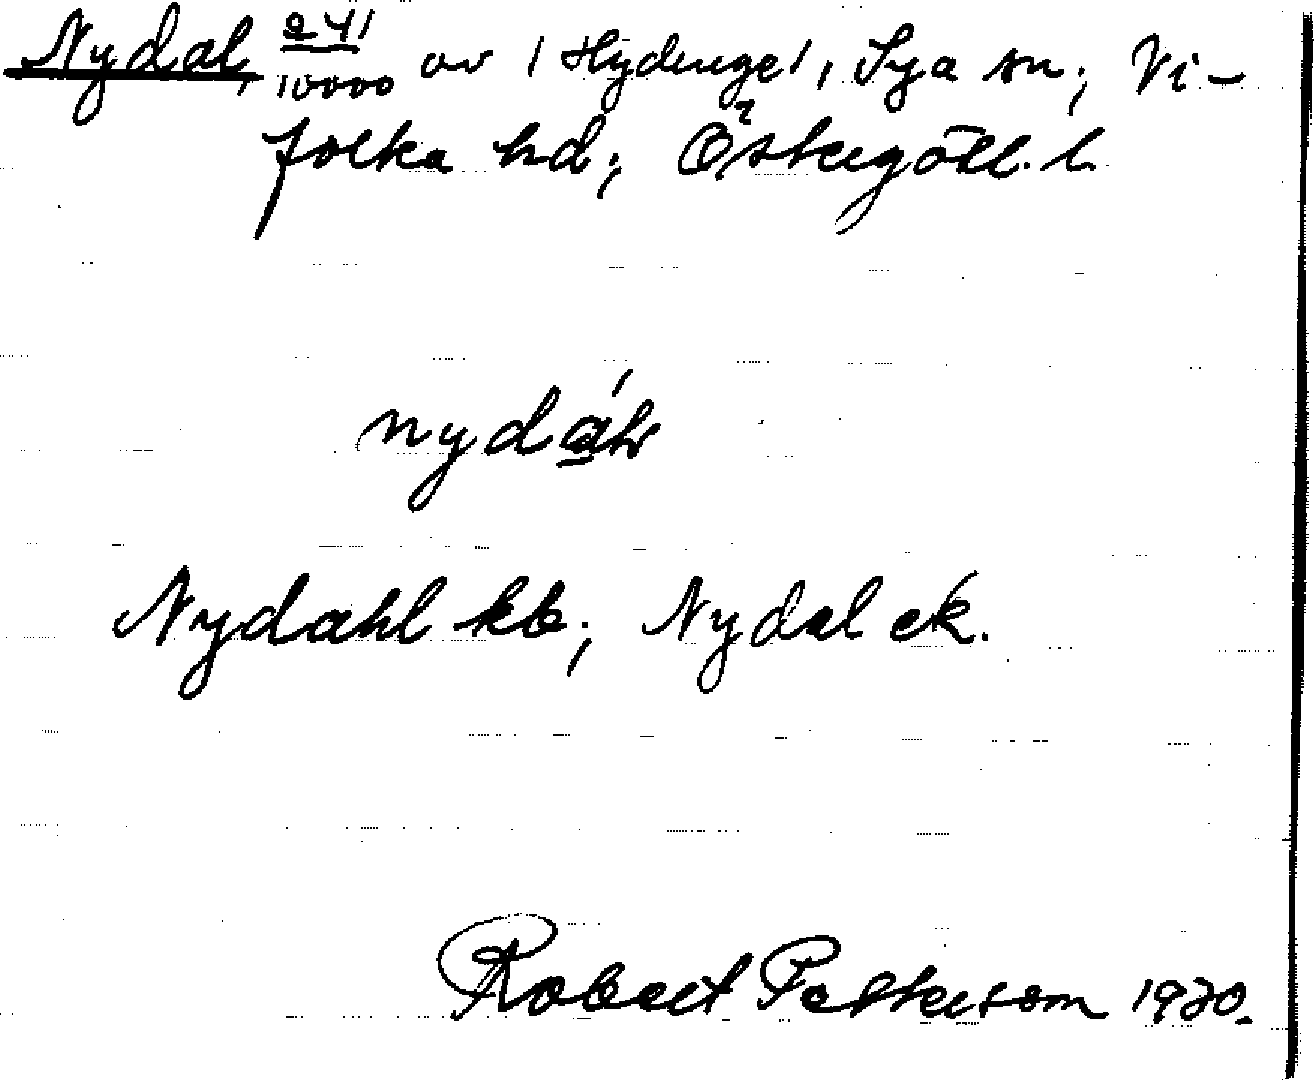 Nydal, 241/10000 av 1 Hydinge 1, Sya sn; Vi-
folka hd; Östergötl. l.
nydáḷ
Nydahl kb; Nydal ek.
Robert Petterson 1920.